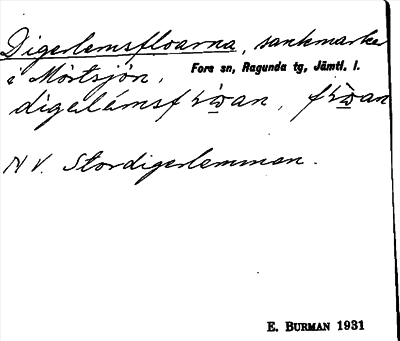 Digerlemsfloarna, sankmarker
i Mörtsjön, Fors sn, Ragunda tg, Jämtl. l.
digelémsf
N V. Stordigerlemmen.
E. BURMAN 1931